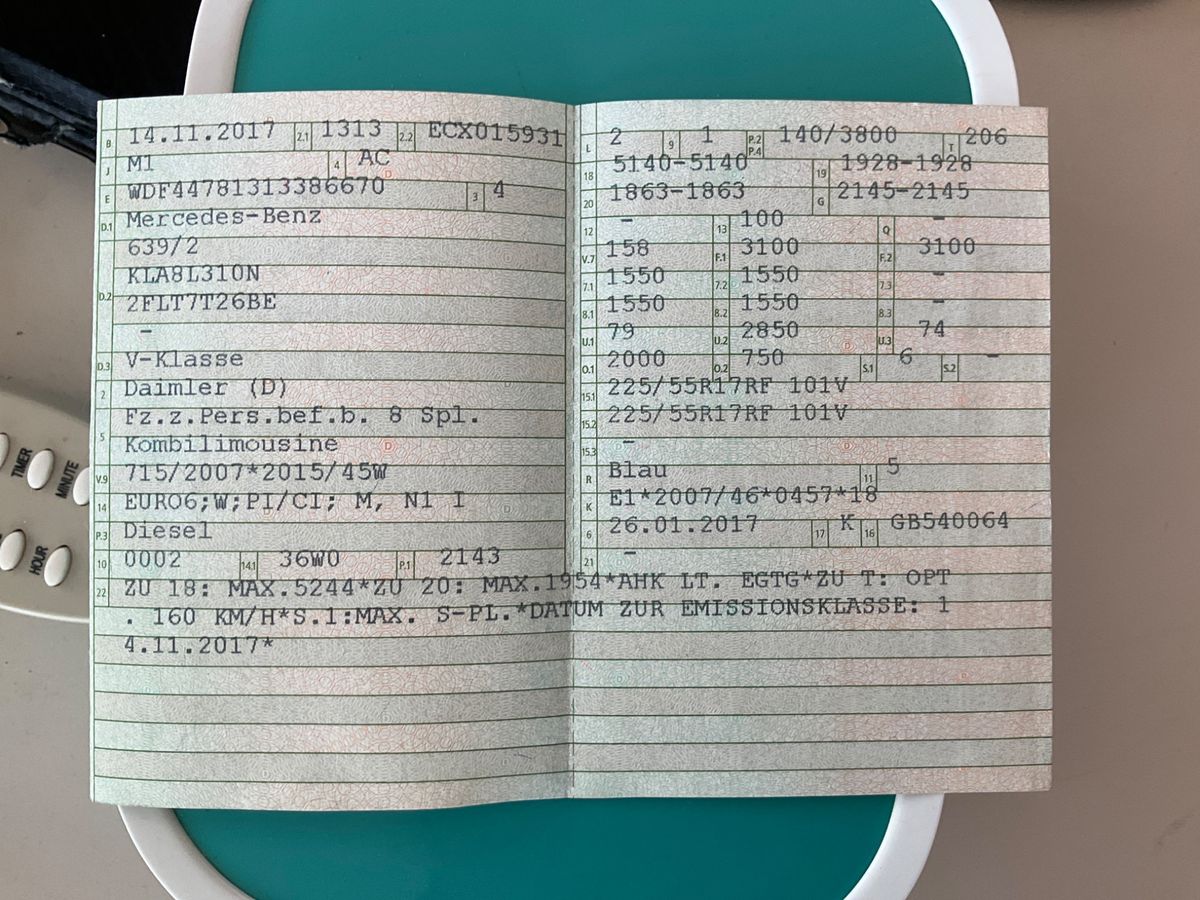 B 14.11.2017 2.1 1313 2.2 ECX015931
J M1 4 AC
E WDF44781313386670 3 4
D.1 Mercedes-Benz
639/2
D.2 KLA8L310N
2FLT7T26BE
-
D.3 V-Klasse
2 Daimler (D)
5 Fz.z.Pers.bef.b. 8 Spl.
Kombilimousine
V.9 715/2007*2015/45W
14 EURO6;W;PI/CI; M, N1 I
P.3 Diesel
10 0002 14.1 36W0 P.1 2143
L 2 9 1 P.2 P.4 140/3800 T 206
18 5140-5140 19 1928-1928
20 1863-1863 G 2145-2145
12 - 13 100 Q -
V.7 158 F.1 3100 F.2 3100
7.1 1550 7.2 1550 7.3 -
8.1 1550 8.2 1550 8.3 -
U.1 79 U.2 2850 U.3 74
O.1 2000 O.2 750 S.1 6 S.2 -
15.1 225/55R17RF 101V
15.2 225/55R17RF 101V
15.3 -
R Blau 11 5
K E1*2007/46*0457*18
6 26.01.2017 17 K 16 GB540064
21 -
22 ZU 18: MAX.5244*ZU 20: MAX.1954*AHK LT. EGTG*ZU T: OPT
. 160 KM/H*S.1:MAX. S-PL.*DATUM ZUR EMISSIONSKLASSE: 1
4.11.2017*
TIMER
MINUTE
HOUR